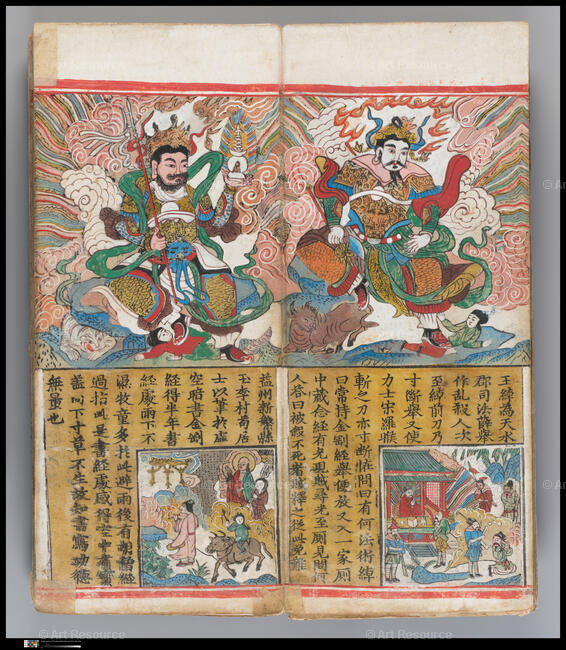 王綽為天水
郡司法薛舉
作乱殺人次
至綽前刀乃
寸断舉又使
力士宋羅㬋
斬之刀亦寸断怪問曰有何法術綽
曰常持金剛經舉便放又入一家厠
中藏念經有光現賊尋光至厠見問何
人答曰被殺不死者賊之從此免難
益州新繁縣
王李村荀居
士以筆於虛
空暗書金剛
經得半年書
經處雨下不
濕牧童多於此避雨後有胡僧經
過指此是書經處感得空中有寶
盖以下寸草不生故知書寫功德
無量也
© Art Resource
© Art Resource
© Art Resource
© Art Resource